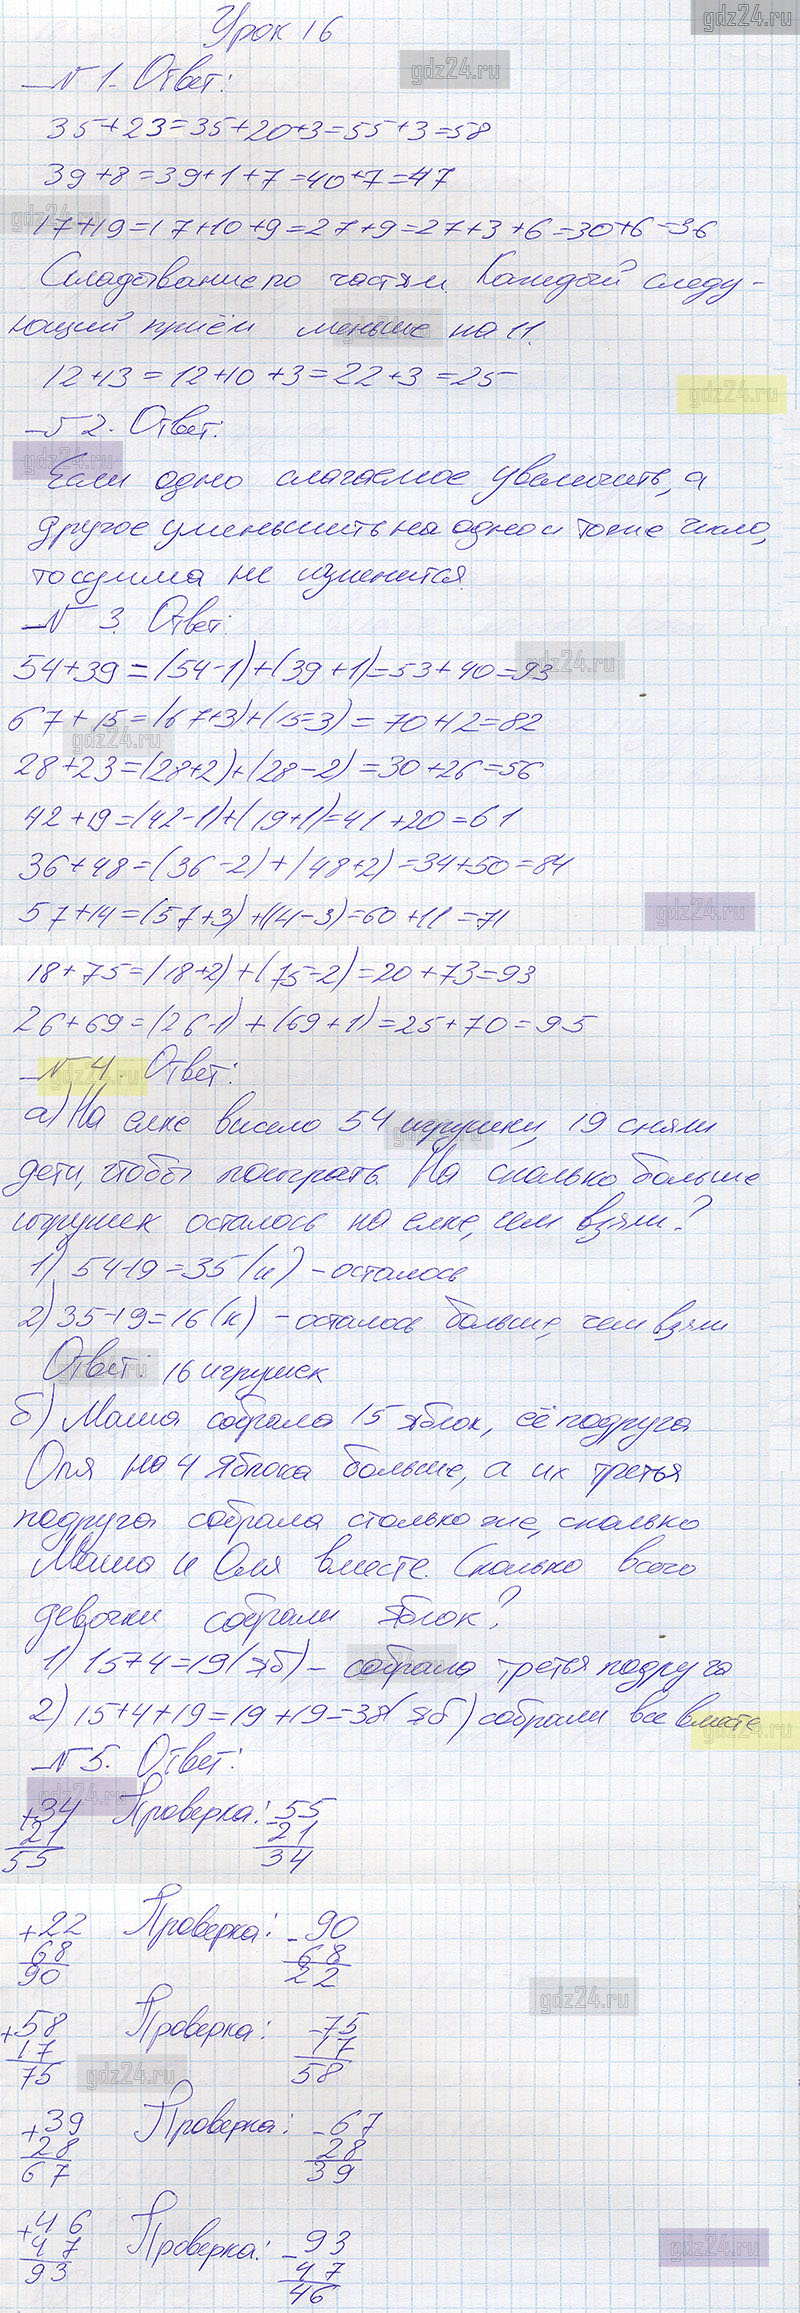 gdz24.ru
Урок 16
gdz24.ru
№ 1. Ответ:
35+23=35+20+3=55+3=58
39+8=39+1+7=40+7=47
gdz24.ru
17+19=17+10+9=27+9=27+3+6=30+6=36
Складывание по частям. Каждый следу-
ющий приём меньше на 11.
gdz24.ru
12+13=12+10+3=22+3=25
gdz24.ru
№ 2. Ответ:
gdz24.ru
Если одно слагаемое увеличить, а
другое уменьшить на одно и тоже число,
то сумма не изменится.
№ 3. Ответ:
gdz24.ru
54+39=(54-1)+(39+1)=53+40=93
67+15=(67+3)+(15-3)=70+12=82
gdz24.ru
28+23=(28+2)+(28-2)=30+26=56
42+19=(42-1)+(19+1)=41+20=61
36+48=(36-2)+(48+2)=34+50=84
57+14=(57+3)+(14-3)=60+11=71
gdz24.ru
18+75=(18+2)+(75-2)=20+73=93
26+69=(26-1)+(69+1)=25+70=95
№ 4. Ответ:
gdz24.ru
а) На елке висело 54 игрушки, 19 сняли
gdz24.ru
дети, чтобы поиграть. На сколько больше
игрушек осталось на елке, чем взяли?
1) 54-19=35(и) - осталось
2) 35-19=16(и) - осталось больше, чем взяли
Ответ: 16 игрушек
gdz24.ru
б) Маша собрала 15 яблок, её подруга
Оля на 4 яблока больше, а их третья
подруга собрала столько же, сколько
Маша и Оля вместе. Сколько всего
девочки собрали яблок?
1) 15+4=19(яб) - собрала третья подруга
gdz24.ru
2) 15+4+19=19+19=38(яб) собрали все вместе
gdz24.ru
№ 5. Ответ:
gdz24.ru
+34 Проверка: -55
21 21
55 34
+22 Проверка: -90
68 68
90 22
gdz24.ru
+58 Проверка: -75
17 17
75 58
gdz24.ru
+39 Проверка: -67
28 28
67 39
+46 Проверка: -93
47 47
93 46
gdz24.ru